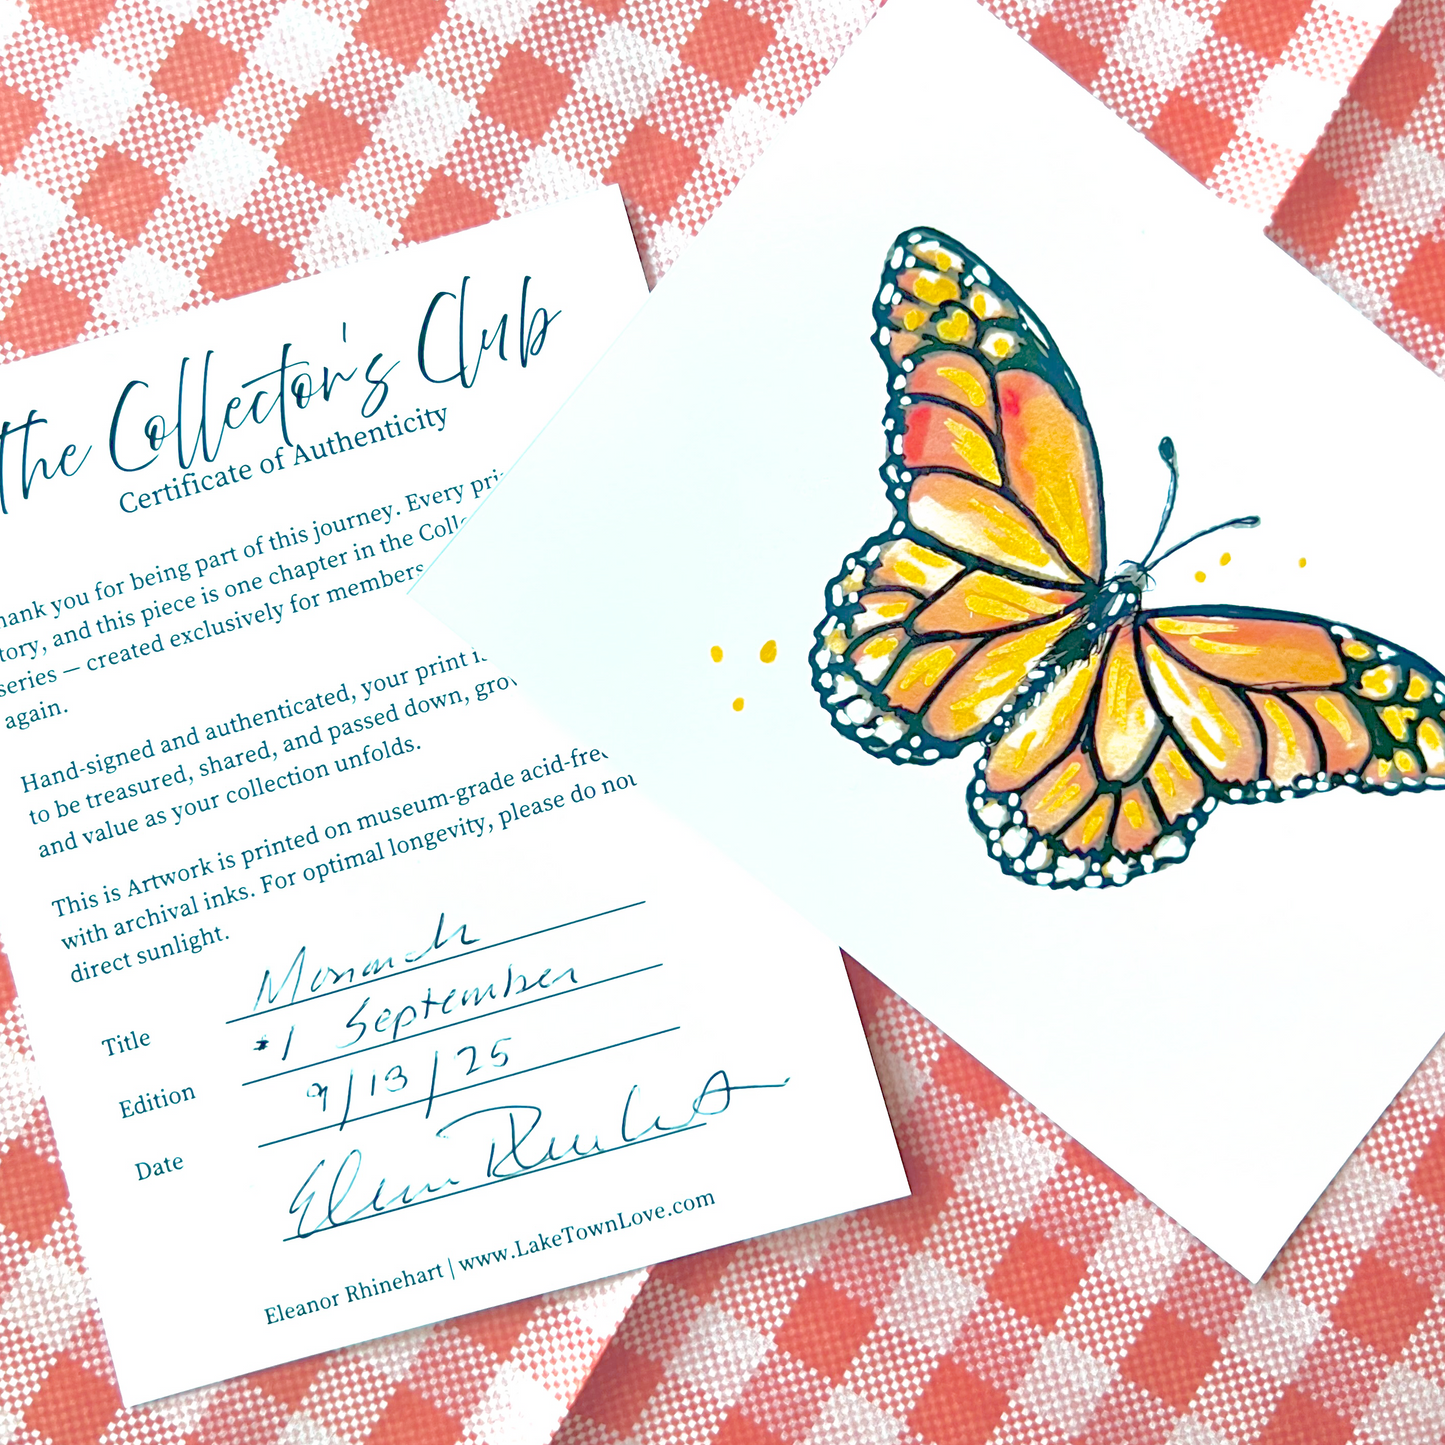 the Collector's Club
Certificate of Authenticity
hank you for being part of this journey. Every pri
tory, and this piece is one chapter in the Colle
series — created exclusively for members
again.
Hand-signed and authenticated, your print i
to be treasured, shared, and passed down, grow
and value as your collection unfolds.
This is Artwork is printed on museum-grade acid-free
with archival inks. For optimal longevity, please do not
direct sunlight.
Title Monarch
Edition #1 September
Date 9/13/25
Eleanor Rhinehart
Eleanor Rhinehart | www.LakeTownLove.com